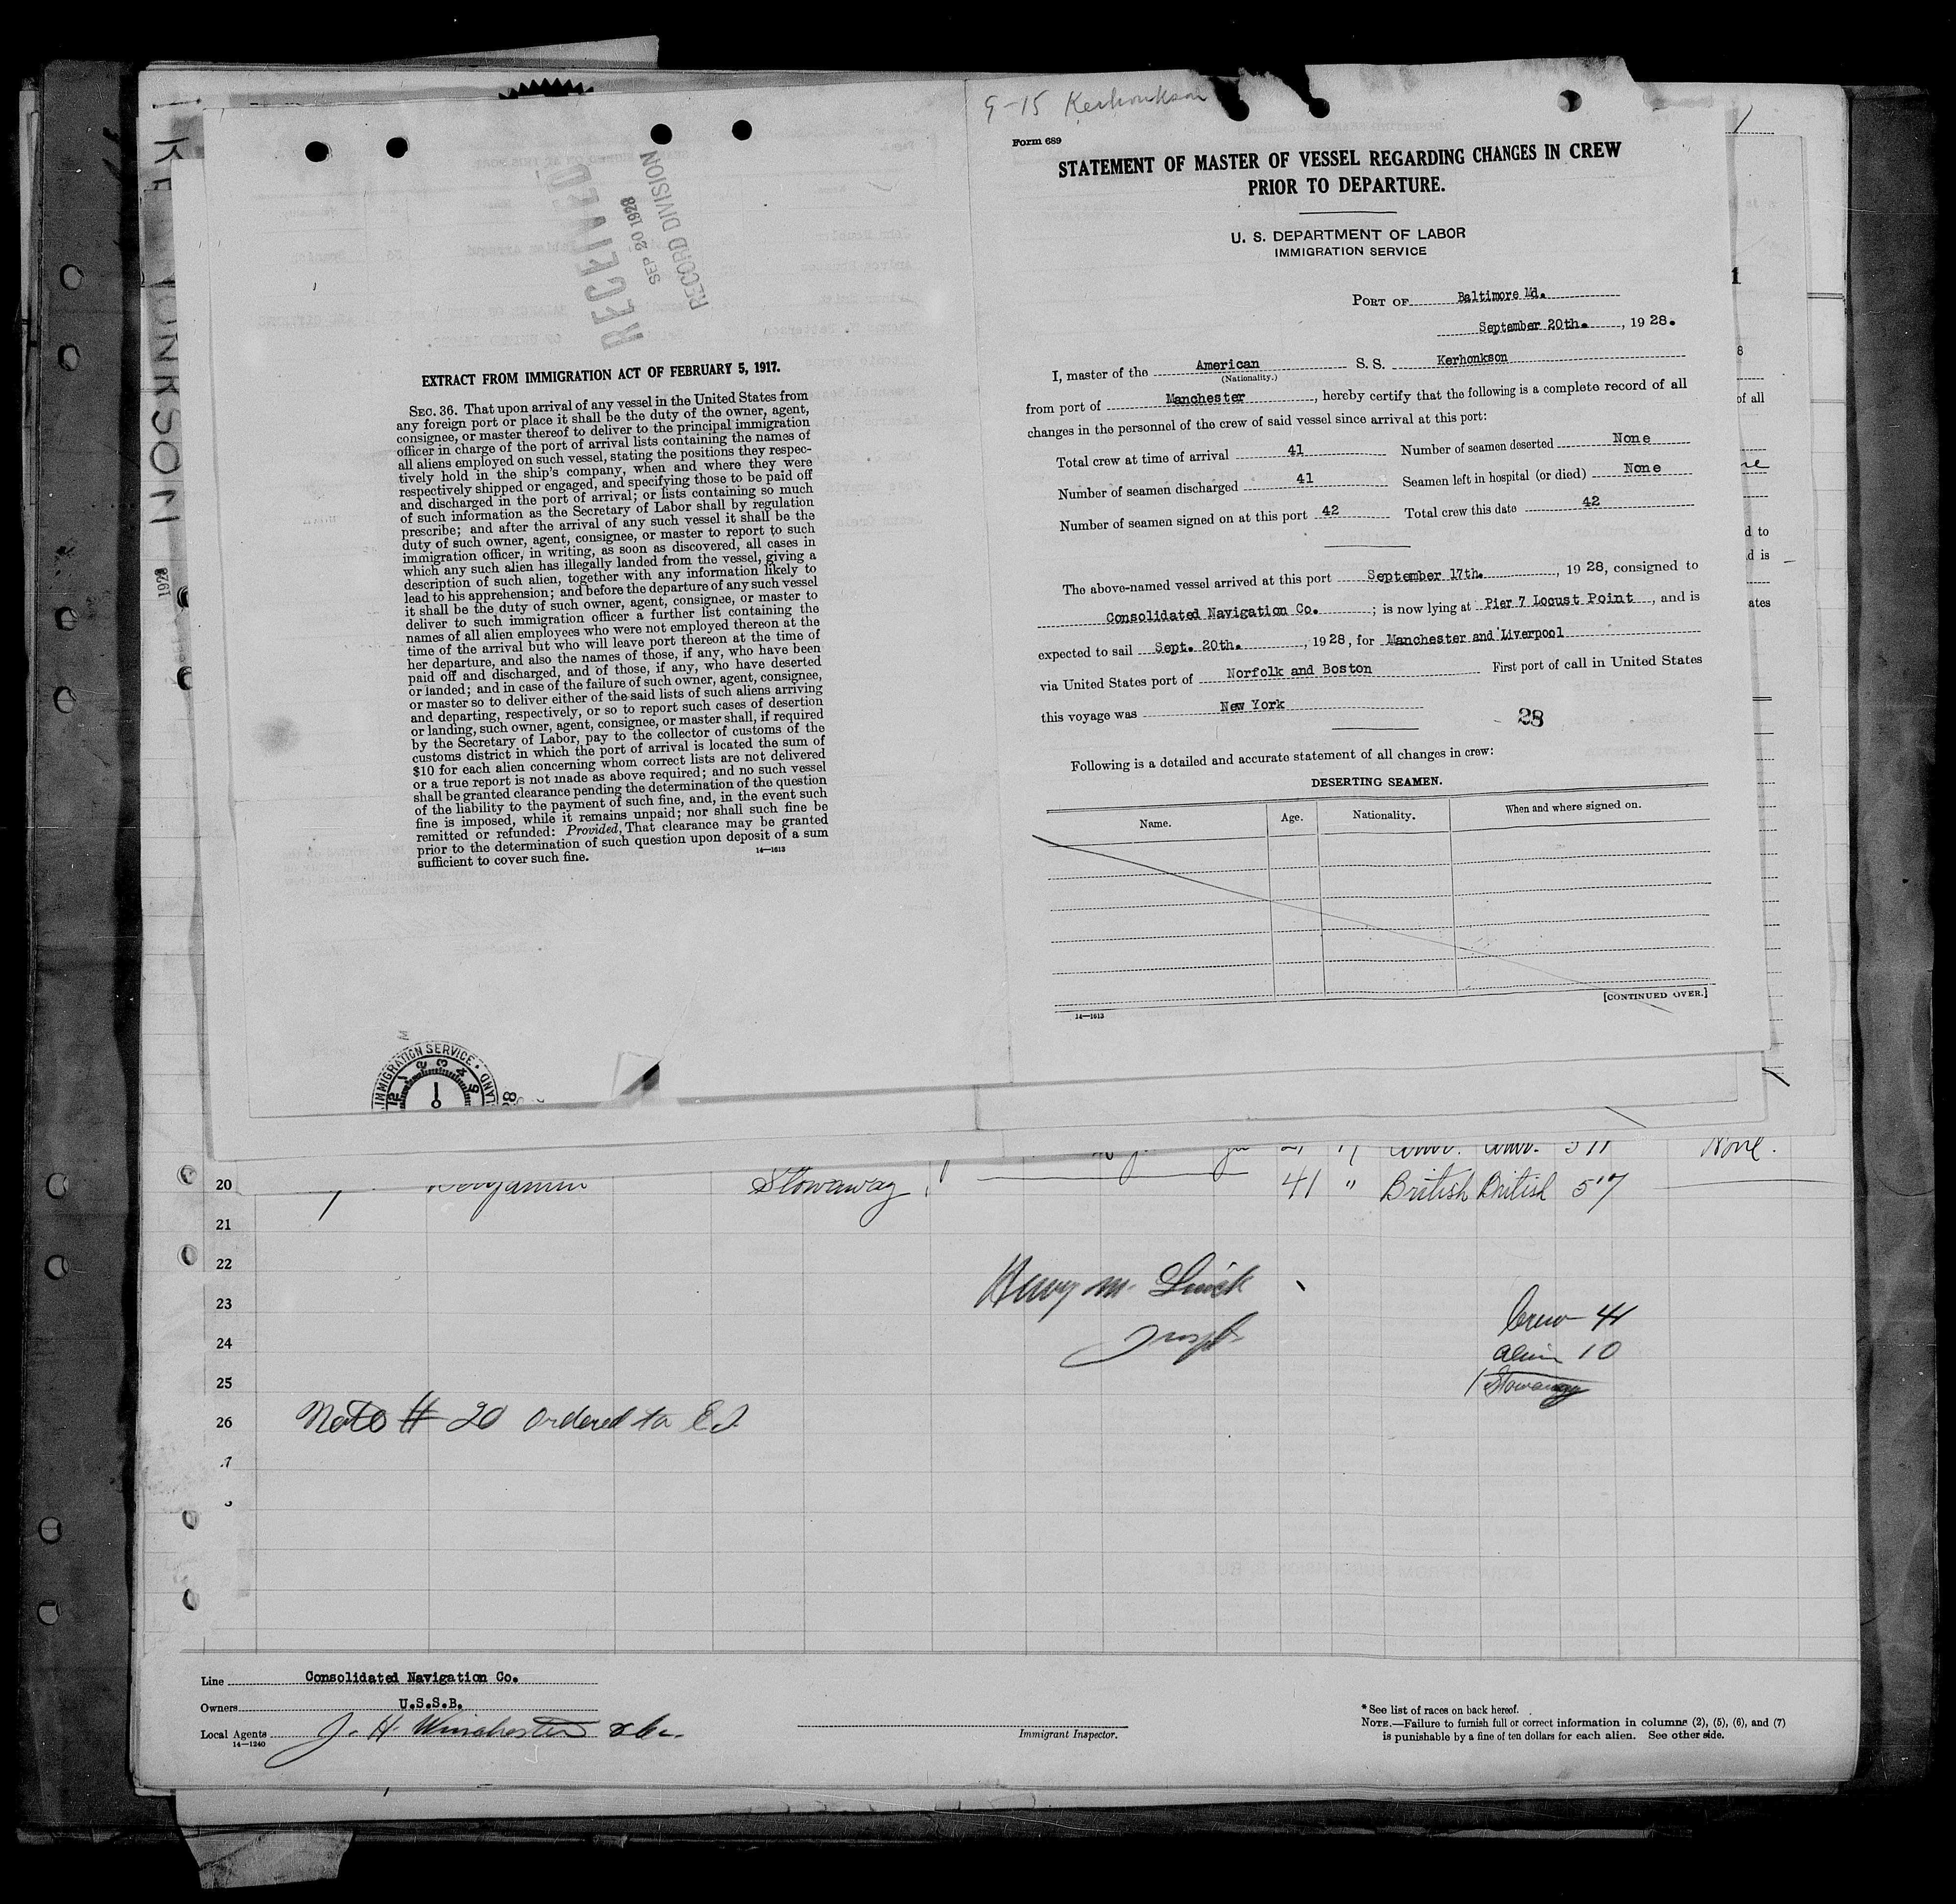 KERHONKSON
1928
RECEIVED
SEP 20 1928
RECORD DIVISION
EXTRACT FROM IMMIGRATION ACT OF FEBRUARY 5, 1917.
SEC. 36. That upon arrival of any vessel in the United States from
any foreign port or place it shall be the duty of the owner, agent,
consignee, or master thereof to deliver to the principal immigration
officer in charge of the port of arrival lists containing the names of
all aliens employed on such vessel, stating the positions they respec-
tively hold in the ship's company, when and where they were
respectively shipped or engaged, and specifying those to be paid off
and discharged in the port of arrival; or lists containing so much
of such information as the Secretary of Labor shall by regulation
prescribe; and after the arrival of any such vessel it shall be the
duty of such owner, agent, consignee, or master to report to such
immigration officer, in writing, as soon as discovered, all cases in
which any such alien has illegally landed from the vessel, giving a
description of such alien, together with any information likely to
lead to his apprehension; and before the departure of any such vessel
it shall be the duty of such owner, agent, consignee, or master to
deliver to such immigration officer a further list containing the
names of all alien employees who were not employed thereon at the
time of the arrival but who will leave port thereon at the time of
her departure, and also the names of those, if any, who have been
paid off and discharged, and of those, if any, who have deserted
or landed; and in case of the failure of such owner, agent, consignee,
or master so to deliver either of the said lists of such aliens arriving
and departing, respectively, or so to report such cases of desertion
or landing, such owner, agent, consignee, or master shall, if required
by the Secretary of Labor, pay to the collector of customs of the
customs district in which the port of arrival is located the sum of
$10 for each alien concerning whom correct lists are not delivered
or a true report is not made as above required; and no such vessel
shall be granted clearance pending the determination of the question
of the liability to the payment of such fine, and, in the event such
fine is imposed, while it remains unpaid; nor shall such fine be
remitted or refunded: Provided, That clearance may be granted
prior to the determination of such question upon deposit of a sum
sufficient to cover such fine.
14—1613
IMMIGRATION SERVICE
12 1 2 3 4 5
9-15 Kerhonkson
Form 689
STATEMENT OF MASTER OF VESSEL REGARDING CHANGES IN CREW
PRIOR TO DEPARTURE.
U. S. DEPARTMENT OF LABOR
IMMIGRATION SERVICE
PORT OF Baltimore Md.
September 20th. , 1928.
I, master of the American S. S. Kerhonkson
(Nationality.)
from port of Manchester , hereby certify that the following is a complete record of all
changes in the personnel of the crew of said vessel since arrival at this port:
Total crew at time of arrival 41 Number of seamen deserted None
Number of seamen discharged 41 Seamen left in hospital (or died) None
Number of seamen signed on at this port 42 Total crew this date 42
The above-named vessel arrived at this port September 17th. , 1928, consigned to
Consolidated Navigation Co. ; is now lying at Pier 7 Locust Point , and is
expected to sail Sept. 20th. , 1928, for Manchester and Liverpool
via United States port of Norfolk and Boston First port of call in United States
this voyage was New York
28
Following is a detailed and accurate statement of all changes in crew:
DESERTING SEAMEN.
Name. Age. Nationality. When and where signed on.
[CONTINUED OVER.]
14—1613
of all
d to
d is
ates
None.
20 Benjamin Stowaway 41 " British British 5'7
21
22
23
24
25
26
Henry M.
Crew 41
alien 10
1 Stowaway
Note # 20 ordered to E I
Line Consolidated Navigation Co.
Owners U.S.S.B.
Local Agents J. H. Winchester & Co.
14—1240
Immigrant Inspector.
* See list of races on back hereof.
NOTE.—Failure to furnish full or correct information in columns (2), (5), (6), and (7)
is punishable by a fine of ten dollars for each alien. See other side.